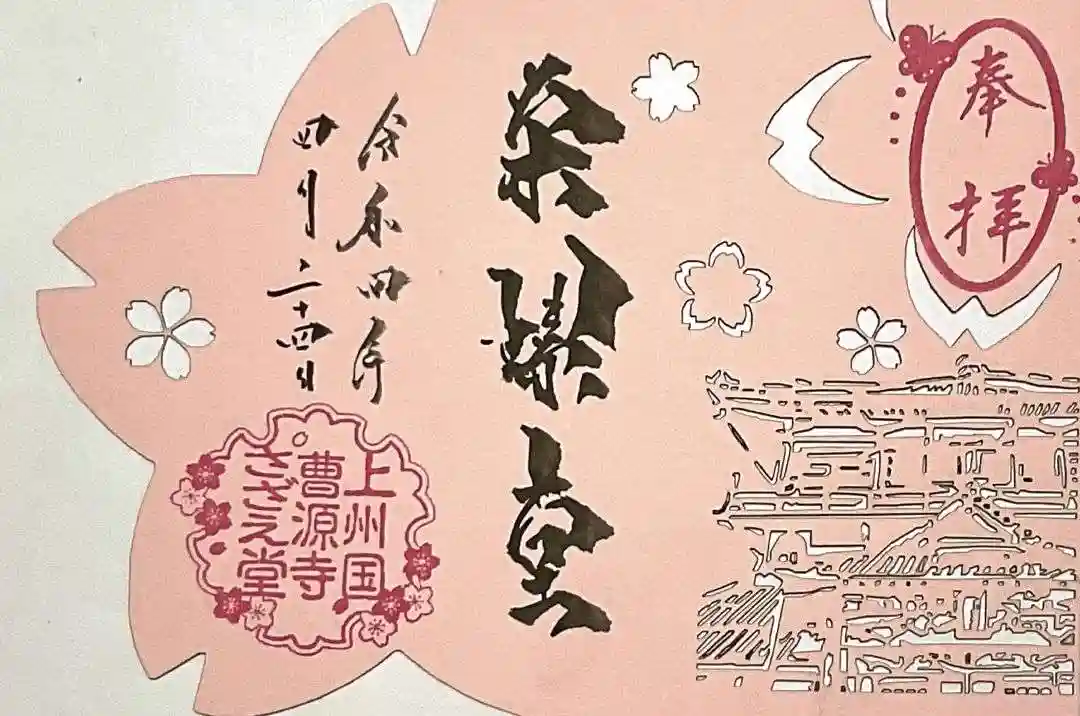 奉拝
栄螺堂
令和四年
四月二十四日
上州国
曹源寺
さざえ堂